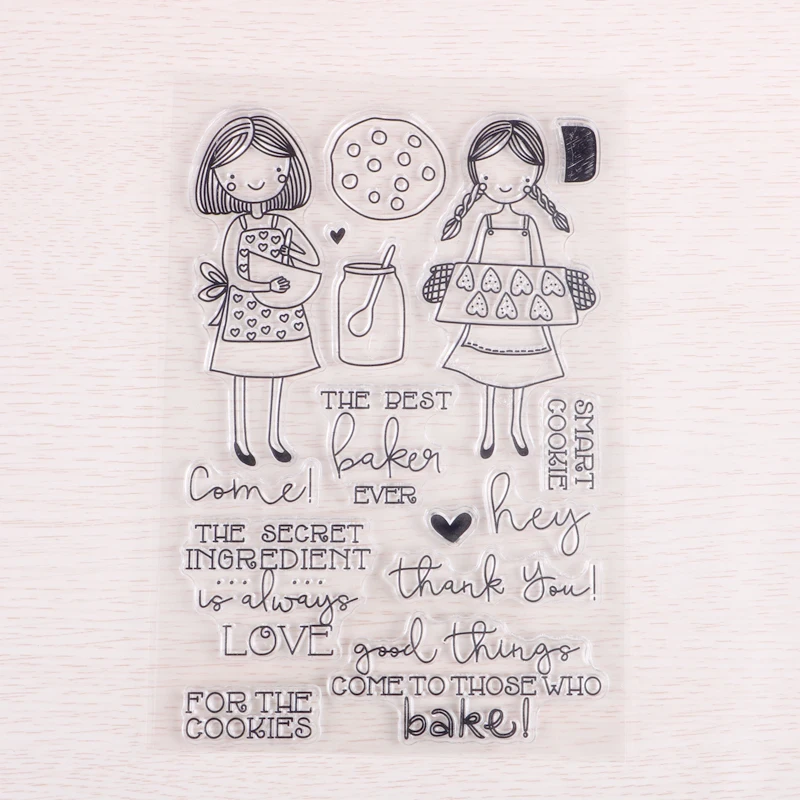 THE BEST
baker
EVER
SMART
COOKIE
Come!
hey
THE SECRET
INGREDIENT
... is always ...
LOVE
thank you!
good things
COME TO THOSE WHO
bake!
FOR THE
COOKIES